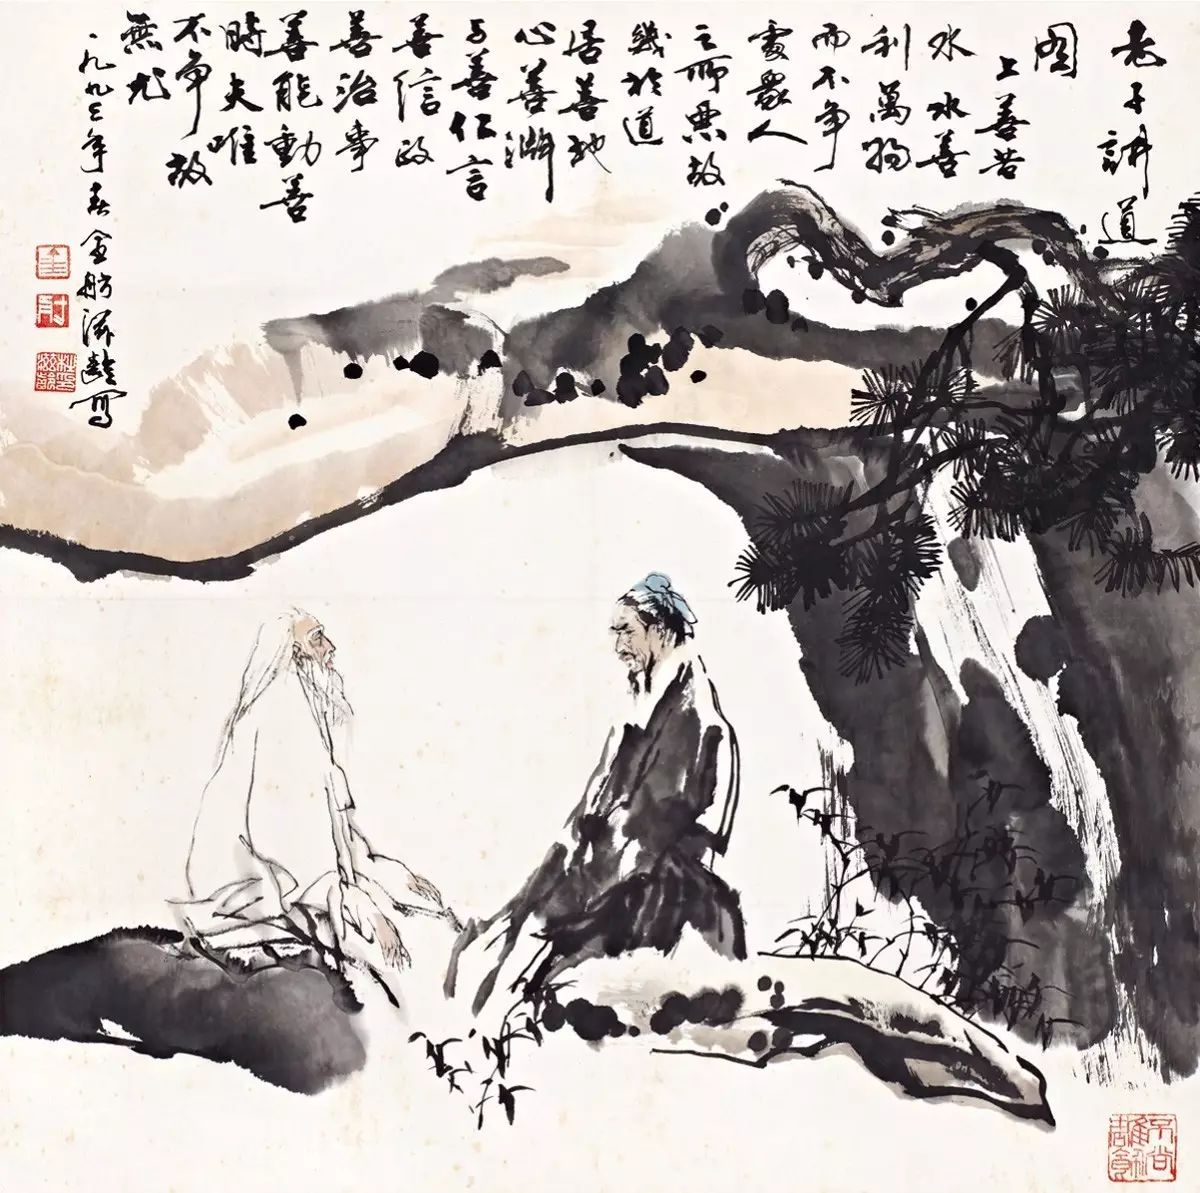 老子讲道
图
上善若
水水善
利萬物
而不争
處衆人
之所惡故
幾於道
居善地
心善淵
与善仁言
善信政
善治事
善能動善
時夫唯
不争故
無尤
一九九三年春金舫添齡寫